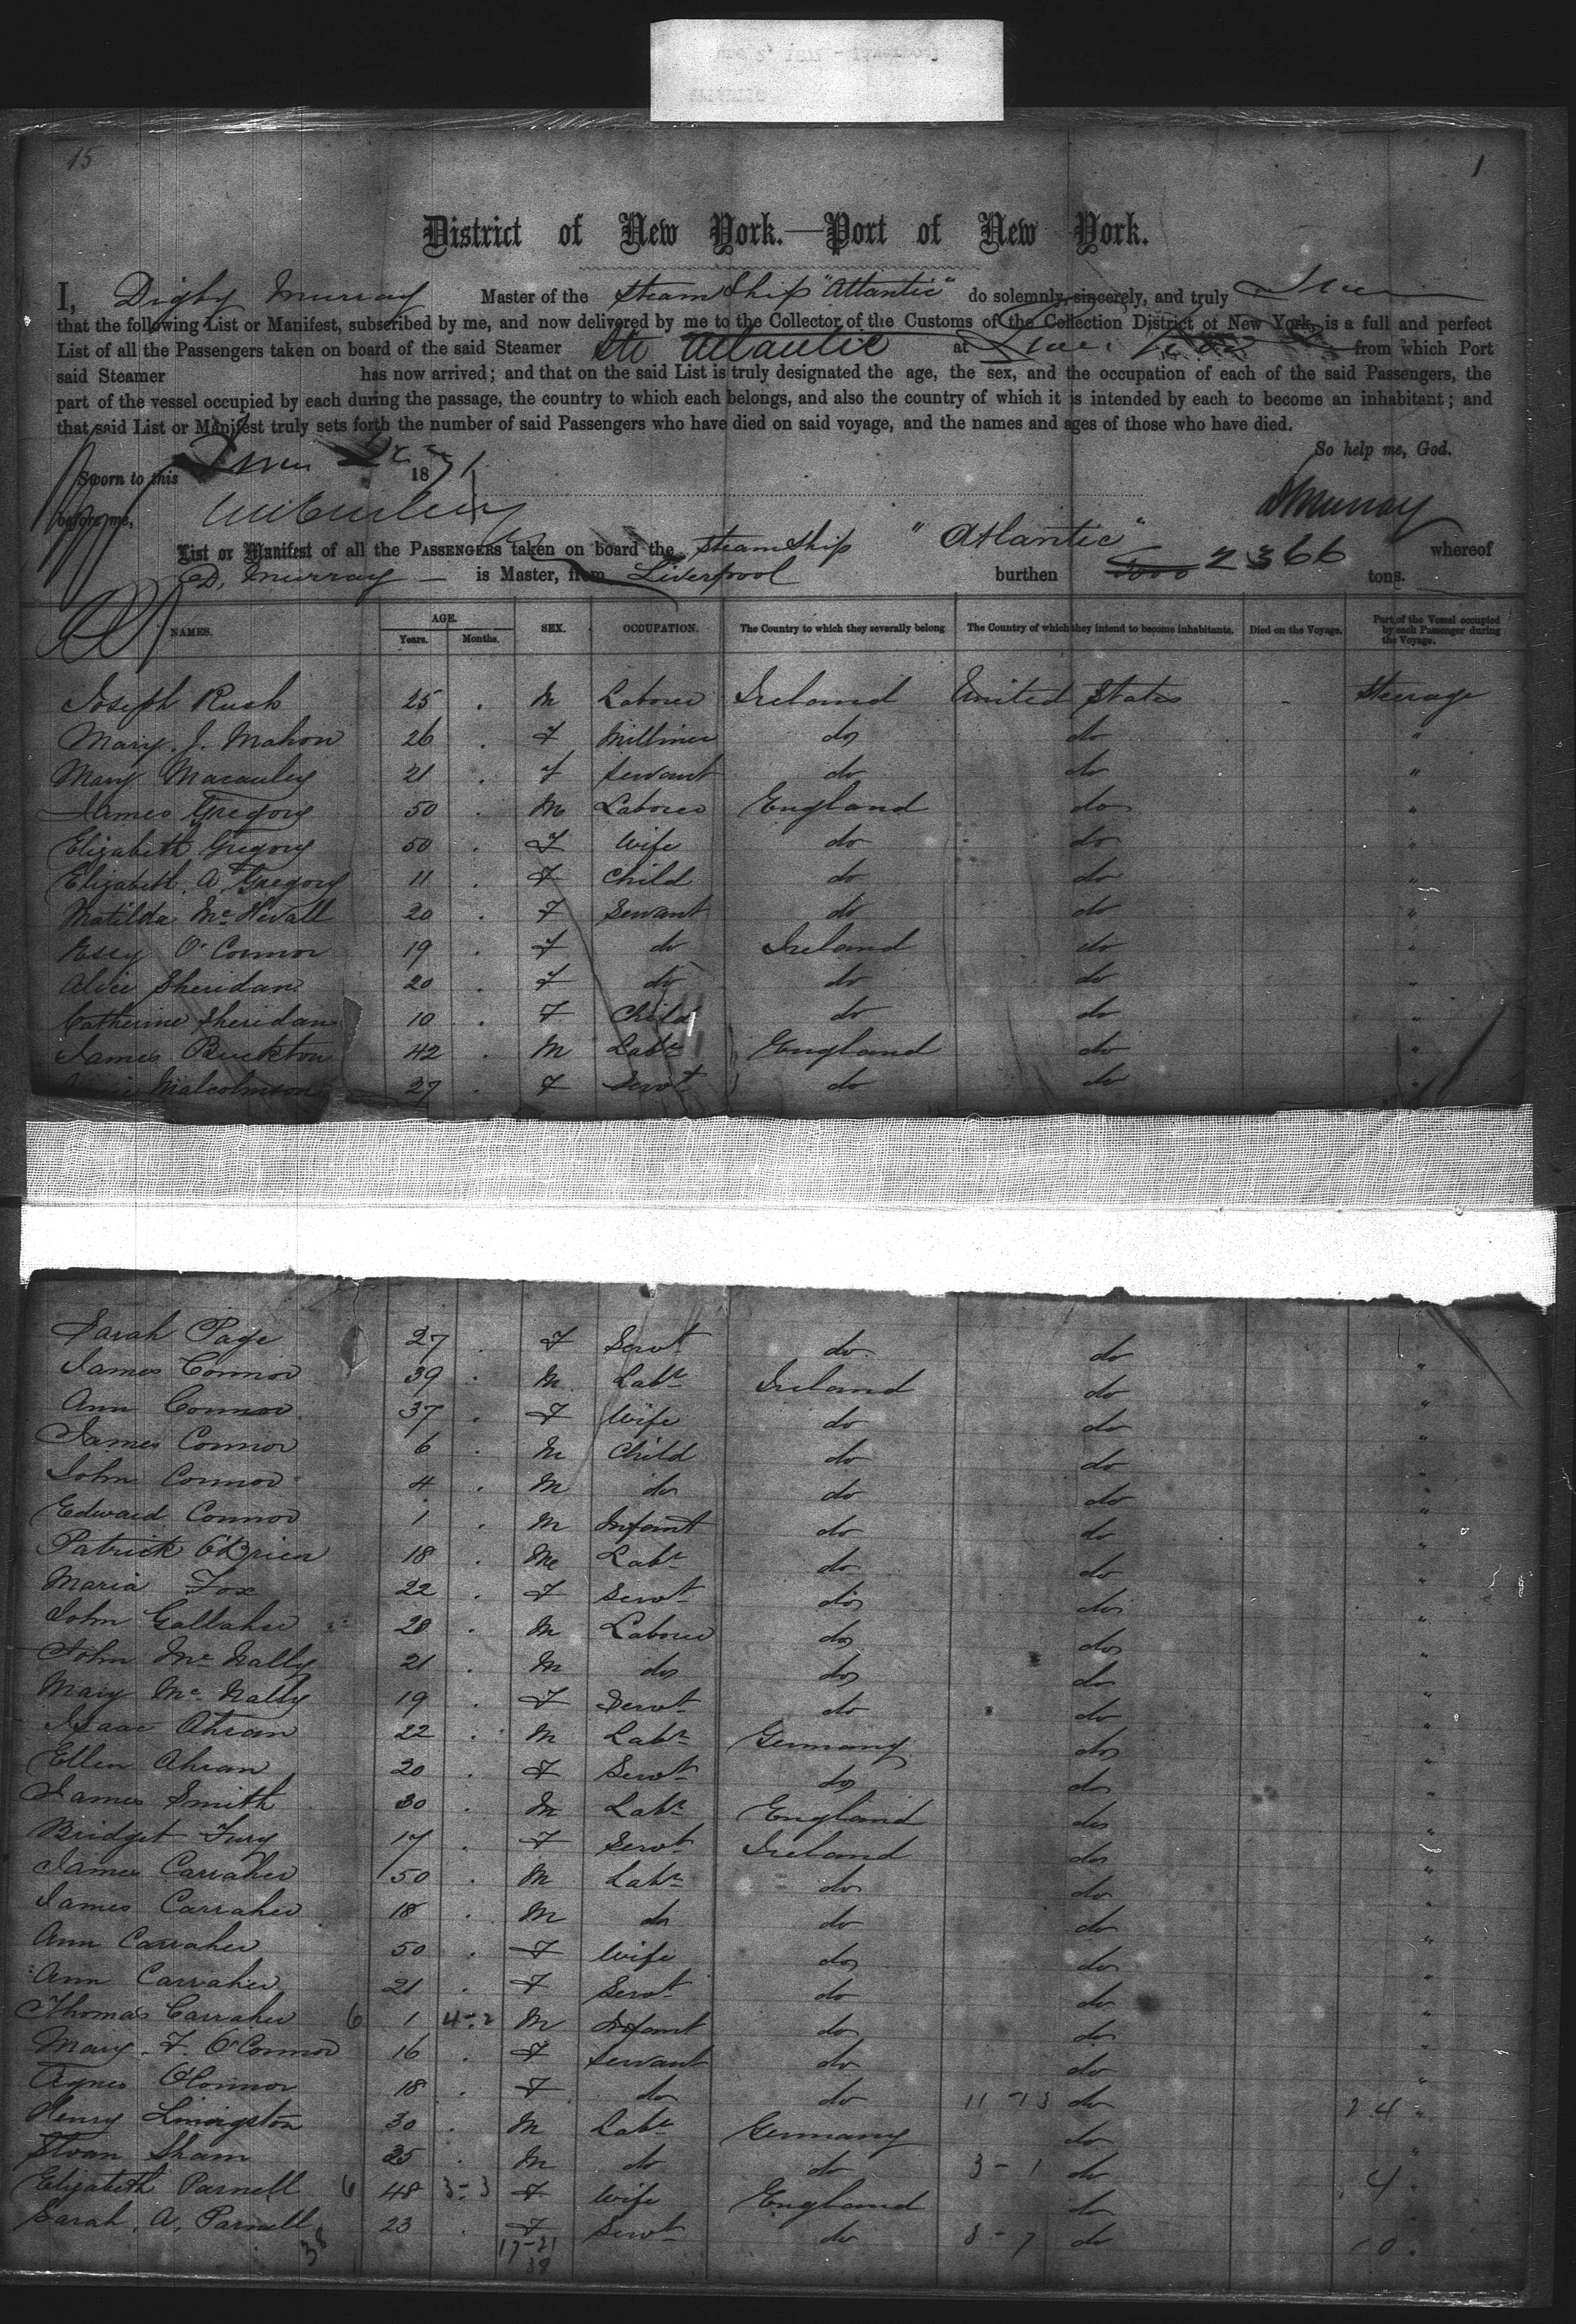 15
1
District of New York.—Port of New York.
I, Digby Murray Master of the Steam Ship "Atlantic" do solemnly, sincerely, and truly
that the following List or Manifest, subscribed by me, and now delivered by me to the Collector of the Customs of the Collection District of New York, is a full and perfect
List of all the Passengers taken on board of the said Steamer Str Atlantic at from which Port
said Steamer has now arrived; and that on the said List is truly designated the age, the sex, and the occupation of each of the said Passengers, the
part of the vessel occupied by each during the passage, the country to which each belongs, and also the country of which it is intended by each to become an inhabitant; and
that said List or Manifest truly sets forth the number of said Passengers who have died on said voyage, and the names and ages of those who have died.
So help me, God.
Sworn to this 1871
before me, DMurray
List or Manifest of all the PASSENGERS taken on board the Steam Ship "Atlantic" whereof
D. Murray is Master, from Liverpool burthen 2366 tons.
NAMES. AGE. Years. Months. SEX. OCCUPATION. The Country to which they severally belong The Country of which they intend to become inhabitants. Died on the Voyage. Part of the Vessel occupied by each Passenger during the Voyage.
Joseph Rush 25 . M Labourer Ireland United States - Steerage
Mary J. Mahon 26 . F Milliner do do "
Mary Macauley 21 . F Servant do do "
James Gregory 50 . M Labourer England do "
Elizabeth Gregory 50 . F Wife do do "
Elizabeth A Gregory 11 . F Child do do "
Matilda Mc 20 . F Servant do do "
O'Connor 19 . F do Ireland do "
Alice Sheridan 20 . F do do do "
Catherine Sheridan 10 . F Child do do "
James Buckton 42 . M Labr England do "
Malcolmson 27 . F Servt do do "
Sarah Page 27 . F Servt do do "
James Connor 39 . M Labr Ireland do "
Ann Connor 37 . F Wife do do "
James Connor 6 . M Child do do "
John Connor 4 . M do do do "
Edward Connor 1 . M Infant do do "
Patrick O'Brien 18 . M Labr do do "
Maria Fox 22 . F Servt do do "
John Gallaher 28 . M Labourer do do "
John Mc Nally 21 . M do do do "
Mary Mc Nally 19 . F Servt do do "
Isaac Ahran 22 . M Labr Germany do "
Ellen Ahran 20 . F Servt do do "
James Smith 30 . M Labr England do "
Bridget Fury 17 . F Servt Ireland do "
James Carraher 50 . M Labr do do "
James Carraher 18 . M do do do "
Ann Carraher 50 . F Wife do do "
Ann Carraher 21 . F Servt do do "
Thomas Carraher 6 1 4-2 M Infant do do "
Mary F. O'Connor 16 . F Servant do do "
Agnes O'Connor 18 . F do do 11-13 do 24 "
Henry Livingston 30 . M Labr Germany do "
Sham 25 . M do do 3-1 do 4 "
Elizabeth Parnell 6 48 3-3 F Wife England do "
Sarah A. Parnell 23 . F Servt do 3-7 do 10 "
38 17-21
38